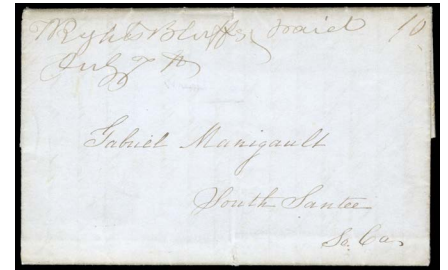 Wrights Bluff paid 10
July 7th
Gabriel Manigault
South Santee
So. Ca.